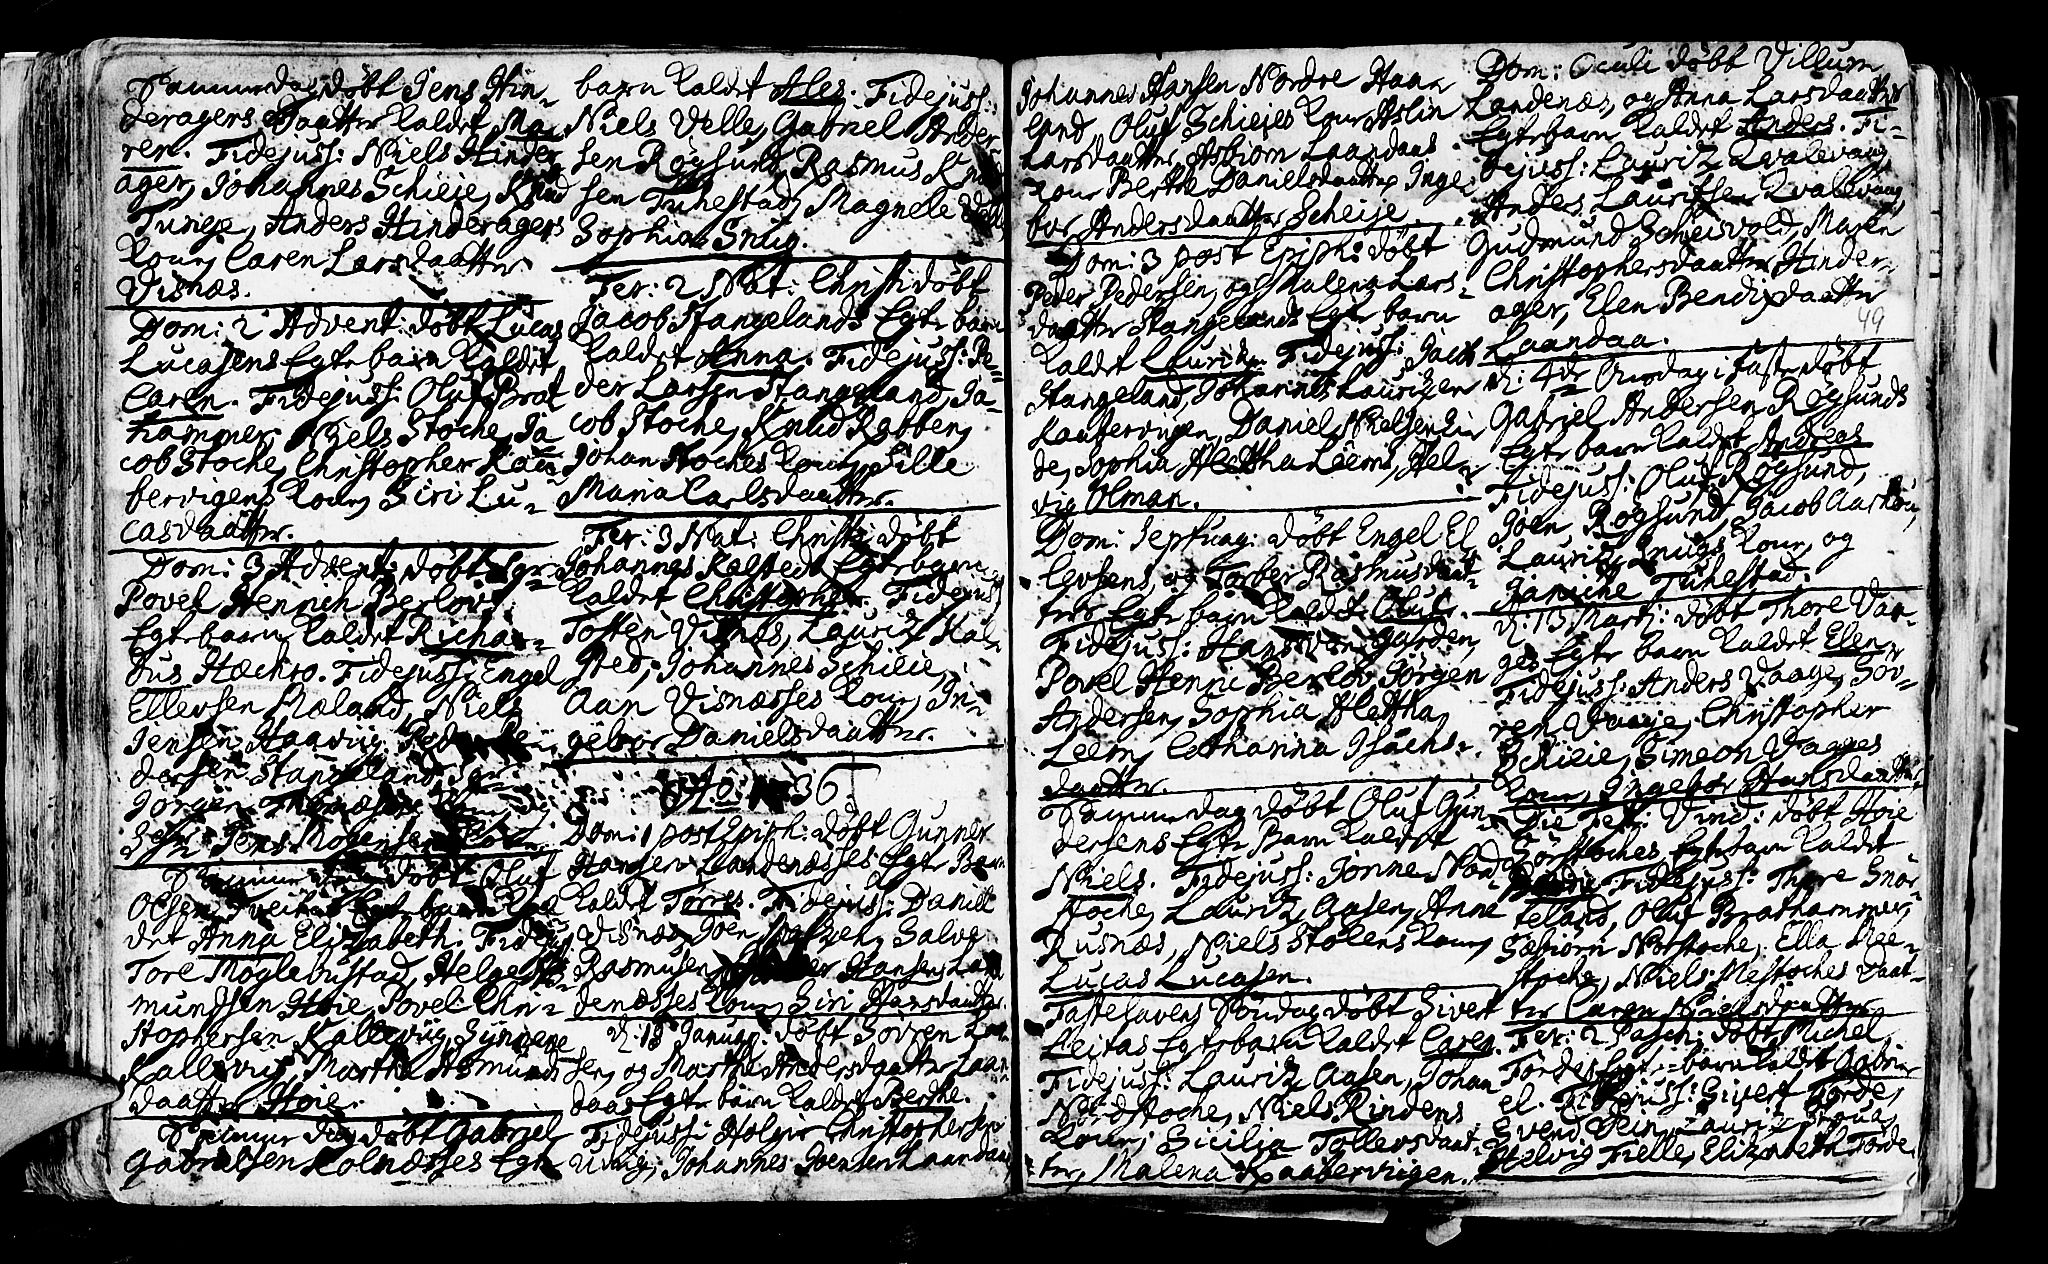 Samme dag döbt Jens Hin-
deragers Daatter Kaldet Ma-
ren. Fidejuss: Niels Hinder
ager, Johannes Schieie, Knud
Tunge, Anders Hinderagers
Kone, Caren Larsdaatter
Visnæs.
Dom: 2 Advent: döbt Lucas
Lucasens Egte barn Kaldet
Caren. Fidejuss: Oluf Brat
hammer, Niels Stoche, Ja
cob Stoche, Christopher Kaa
bervigens Kone, Siri Lu-
casdaatter.
Dom: 3 Advent: döbt
Povel Hennen Berlovs
Egte barn Kaldet Richar-
dus Hochro. Fidejuss: Engel
Ellevsen Mæland, Niels
Jensen Haavig, Peder
dersen Stangeland
Jörgen
Jens Mogensen
Samme döbt Oluf
Olsen Sveins Egte barn Kal
det Anna Elizabeth. Fidejus
Tore Möglebustad, Helge
mundsen Höie, Povel Chri-
stophersen Kallevig, Sunneve
Kallevig, Marthe Asmunds
daatter Höie.
Samme dag döbt Gabriel
Gabrielsen Kolnæsses Egte
barn Kaldet Ales. Fidejuss:
Niels Velle, Gabriel Ander
sen Röysund, Rasmus Knud
sen Tuhestad, Magnele
Sophia Snug.
Fer: 2 Nat: Christi döbt
Jacob Stangelands Egte barn
Kaldet Anna. Fidejuss: Pe-
der Larsen Stangeland, Ja-
cob Stoche, Knud Rabben,
Johan Stoches Kone, Sille
Maria Carlsdaatter.
Fer: 3 Nat: Christi döbt
Johannes Kalsteds Egte barn
Kaldet Christopher. Fidejus
Tosten Visnæs, Lauritz Kal-
sted, Johannes Schieie,
Aan Visnæsses Kone, In-
gebor Danielsdaatter.
Ao: 1736
Dom: 1 post Epiph: döbt Gunner
Hansen Landenæsses Egte Barn
Kaldet Torres. Fidejuss: Daniel
Visnæs, Joen Salve
Rasmusen, Hansen Lan
denæsses Kone, Siri Hansdaatter.
d: 18 Januar: döbt Sören Lar
sen, og Marthe Andersdaatter Laan
daas Egte barn Kaldet Berthe.
Fidejuss: Holger Christophersen
Udvig, Johannes Joensen Laandaa,
Johannes Hansen Nordre Haa
land, Oluf Schieies Kone Aslin
Larsdaatter, Asbiorn Laandaas
Kone Berthe Danielsdaatter, Inge
bor Andersdaatter Scheije.
Dom: 3 post Epiph: döbt
Peder Pedersen, og Malena Lars-
daatter Stangelands Egte barn
Kaldet Lauritz. Fidejuss: Jacob
Stangeland, Johannes Lauritzen
Kaabervigen, Daniel Nielsen Lin
de, Sophia Hettha Leems, Hel-
vig Olman.
Dom: Septuag: döbt Engel El
levsens, og Torber Rasmusdaat-
ters Egte barn Kaldet Oluf.
Fidejuss: Hans von Garden,
Povel Henni Berlov, Jörgen
Andersen, Sophia Hettha
Leem, Catharina Isachs-
daatter.
Samme dag döbt Oluf Gun
dersens Egte Barn Kaldet
Niels. Fidejuss: Jonne Nord
stoche, Lauritz Aasen, Anne
Rusnæs, Niels Stolens Kone,
Lucas Lucasen.
Fastelavens Söndag döbt Sivert
Leitas Egte barn Kaldet Caren.
Fidejuss: Lauritz Aasen, Johan
Nordstoche, Niels Rindens
Kone, Sicilia Tollevsdaat-
ter, Malena Kaabervigen.
Dom: Oculi döbt Villum
Landenæs, og Anna Larsdaatter
Egte barn Kaldet Anders. Fi-
dejuss: Lauritz Kvalevaag,
Anders Lauritsen Kvalevaag,
Gudmund Scheisvold, Maren
Christophersdaatter Hinder-
ager, Elen Bendixdaatter
49
Laandaa.
d: 4de Onsdag i faste döbt
Gabriel Andersen Röysunds
Egte barn Kaldet Andreas
Fidejuss: Oluf Röysund,
Joen Röysund, Jacob
Lauritz Snugs Kone, og
Janiche Tuhestad.
d: 13 Martj: döbt Thore Vaa-
ges Egte barn Kaldet Elen.
Fidejuss: Anders Vaage, Sör-
ren Vaage, Christopher
Schieie, Simeon Vaages
Kone, Ingebor Hansdaatter.
Die Fest: Vird: döbt Höie
Sörstoches Egte barn Kaldet
Fidejuss: Thore Snör
teland, Oluf Brathammer,
Sæbiörn Norstoche, Ella Mee-
stoche, Niels Mestoches Daat-
ter Caren Nielsdaatter.
Fer: 2 Pasch: döbt Michel
Fördes Egte barn Kaldet Gabri-
el. Fidejuss: Sivert Förde,
Svend Vein, Lauritz Aroua,
Helvig Fielle, Elizabeth Förde.